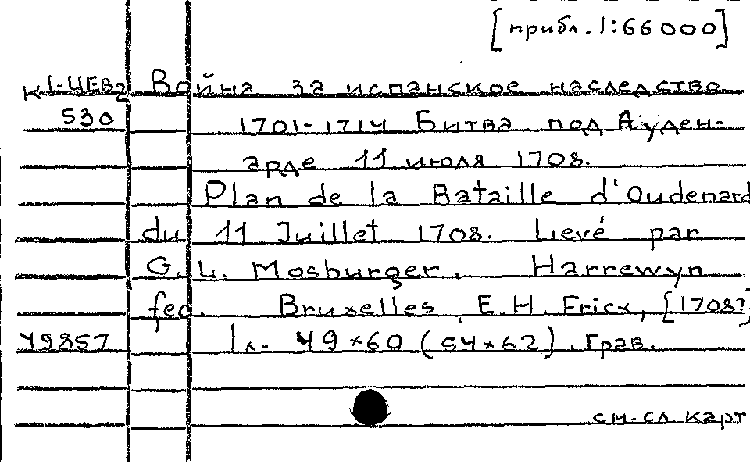 [прибл. 1:66000]
К1-ЧЕВ2 Война за испанское наследство
530 1701-1714 Битва под Ауден-
арде 11 июля 1708.
Plan de la Bataille d'Oudenard
du 11 Juillet 1708. Levé par
G. L. Mosburger. Harrewyn
fec. Bruxelles, E. H. Fricx, [1708?]
49857 1 л. 49×60 (54×62). Грав.
см. сл. карт